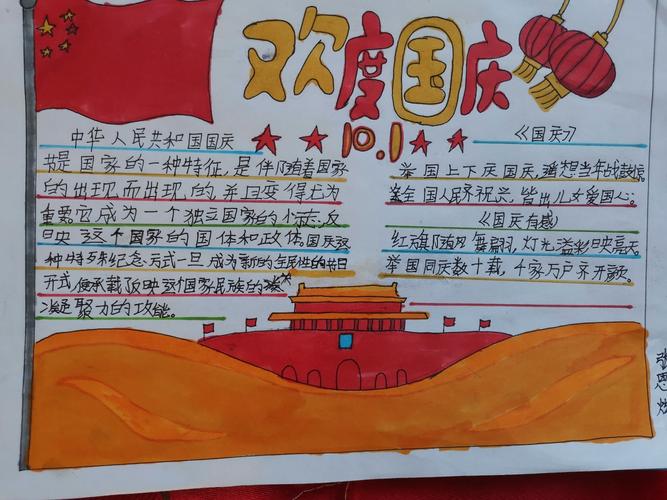 欢度国庆
10.1
中华人民共和国国庆
节是国家的一种特征，是伴随着国家
的出现而出现的，并且变得尤为
重要它成为一个独立国家的小志，反
映这个国家的国体和政体，国庆这
种特殊纪念方式一旦成为新的全民性的节日
形式，便承载反映这个国家民族的
凝聚力的功能。
《国庆》
举国上下庆国庆，遥想当年战鼓
全国人民齐祝兴，皆出儿女爱国心。
《国庆有感》
红旗随风舞翩翩，灯光溢彩映亮天
举国同庆数十载，千家万户齐开颜。
张
恩